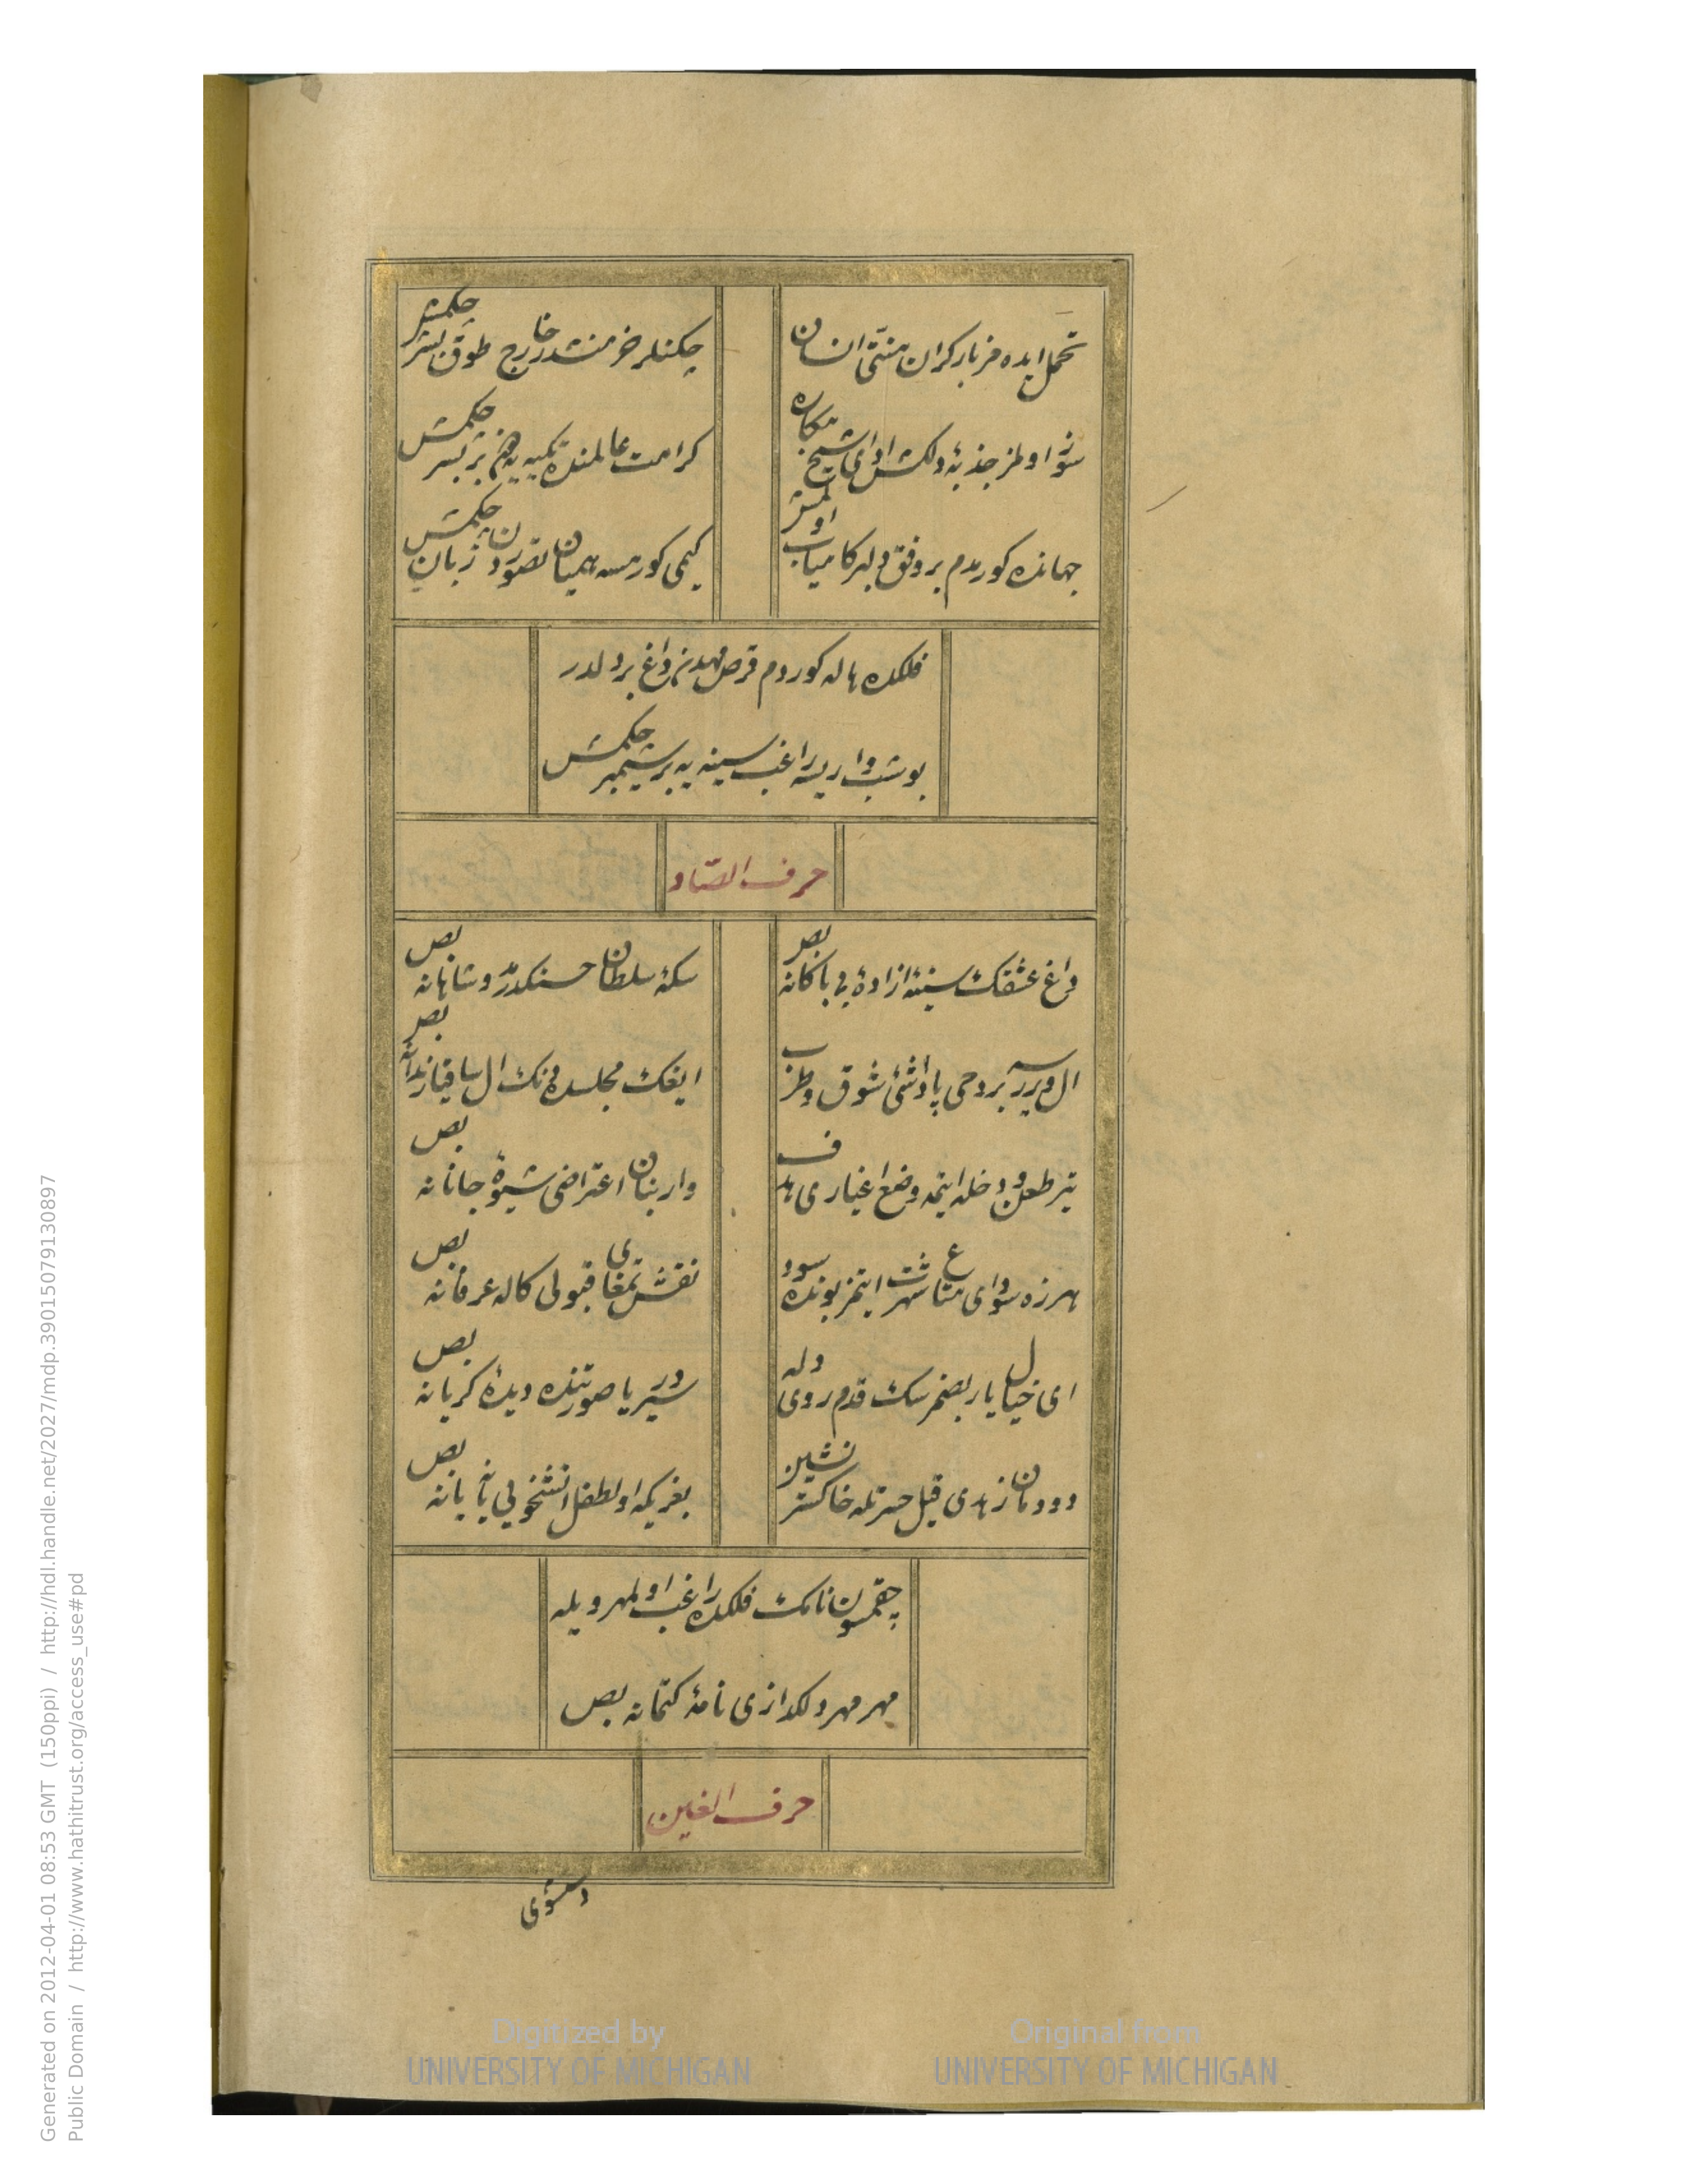 تحمل ایده مز بار کران منتی انسان
چکنلر خرمنندر خارج طوق بشر چکمش
سوز اولمز جذبۀ دلکش ادای شیخ مکاره
کرامت عالمنده تکیه یه بر بسر چکمش
جهانده کورمدم بر وفق دلبر کامیاب اولمش
کیمی کورسه همیان تصور زبان چکمش
فلکده هاله کوردم قرص مهدن داغ بر دلدر
بو شب وار یسه راغب سینه یه بر سیمبر چکمش
حرف الصاد
داغ عشقک سینۀ ازادۀ بی باکانه بص
سکۀ سلطان حسنکدر در و شاهانه بص
ال ویررسه بر دخی پاداشئ شوق و طرب
ایغک مجلسده نک ال ساقیا رندانه بص
تیر طعن و دخله ایتمه وضع اغیاری هدف
وار بنان اعتراضی شیوۀ جانانه بص
هرزه سودای متاع شهرت ایتمز بونده سود
نقش تمغای قبولی کاله عرفانه بص
ای خیال یار بصمز سک قدم روی دله
سیر در یا صورتنده دیدۀ کریانه بص
دودمان زهدی قیل حسرتله خاکستر نشین
بغریکه اول طفل اتشخویی یانه یانه بص
چقمسون نامک فلکده راغب اول مهر و یله
مهر مهر دلکدازی نامۀ کتمانه بص
حرف الغین